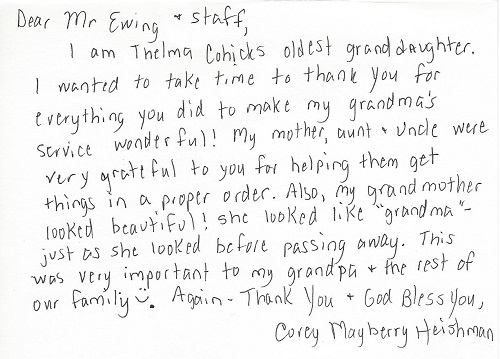 Dear Mr Ewing + staff,
I am Thelma Cohicks oldest granddaughter.
I wanted to take time to thank you for
everything you did to make my grandma's
service wonderful! My mother, aunt + uncle were
very grateful to you for helping them get
things in a proper order. Also, my grandmother
looked beautiful! she looked like "grandma"-
just as she looked before passing away. This
was very important to my grandpa + the rest of
our family ☺. Again - Thank You + God Bless You,
Corey Mayberry Heishman